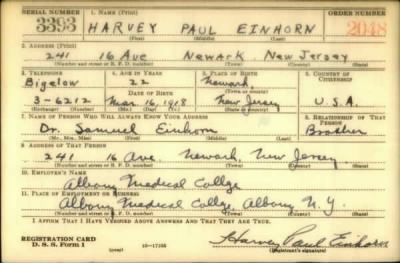 SERIAL NUMBER 1. NAME (Print) ORDER NUMBER
3393 HARVEY PAUL EINHORN 2048
(First) (Middle) (Last)
2. ADDRESS (Print)
241 16 Ave Newark, New Jersey
(Number and street or R. F. D. number) (Town) (County) (State)
3. TELEPHONE 4. AGE IN YEARS 5. PLACE OF BIRTH 6. COUNTRY OF CITIZENSHIP
Bigelow 22 Newark,
DATE OF BIRTH (Town or county)
3-6212 Mar 16, 1918 New Jersey U.S.A.
(Exchange) (No.) (Mo.) (Day) (Yr.) (State or country)
7. NAME OF PERSON WHO WILL ALWAYS KNOW YOUR ADDRESS 8. RELATIONSHIP OF THAT PERSON
Dr. Samuel Einhorn Brother
(Mr., Mrs., Miss) (First) (Middle) (Last)
9. ADDRESS OF THAT PERSON
241 16 Ave. Newark, New Jersey
(Number and street or R. F. D. number) (Town) (County) (State)
10. EMPLOYER'S NAME
Albany Medical College
11. PLACE OF EMPLOYMENT OR BUSINESS
Albany Medical College, Albany N.Y.
(Number and street or R. F. D. number) (Town) (County) (State)
I AFFIRM THAT I HAVE VERIFIED ABOVE ANSWERS AND THAT THEY ARE TRUE.
REGISTRATION CARD
D. S. S. Form 1 (over) 16-17105 Harvey Paul Einhorn
(Registrant's signature)